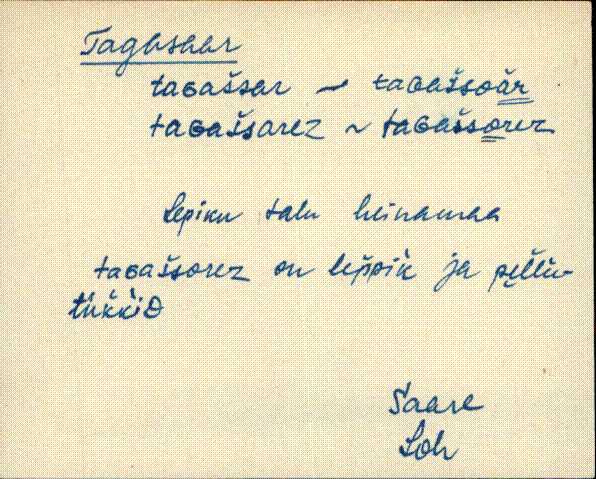 Tagasaar
taGašsar ~ taGaššoär
taGaššarez ~ taGaššorez
Lepiku talu heinamaa
taGaššorez on lep̆pik ja pel̆lu-
tük̆kiD
Saare
Loh